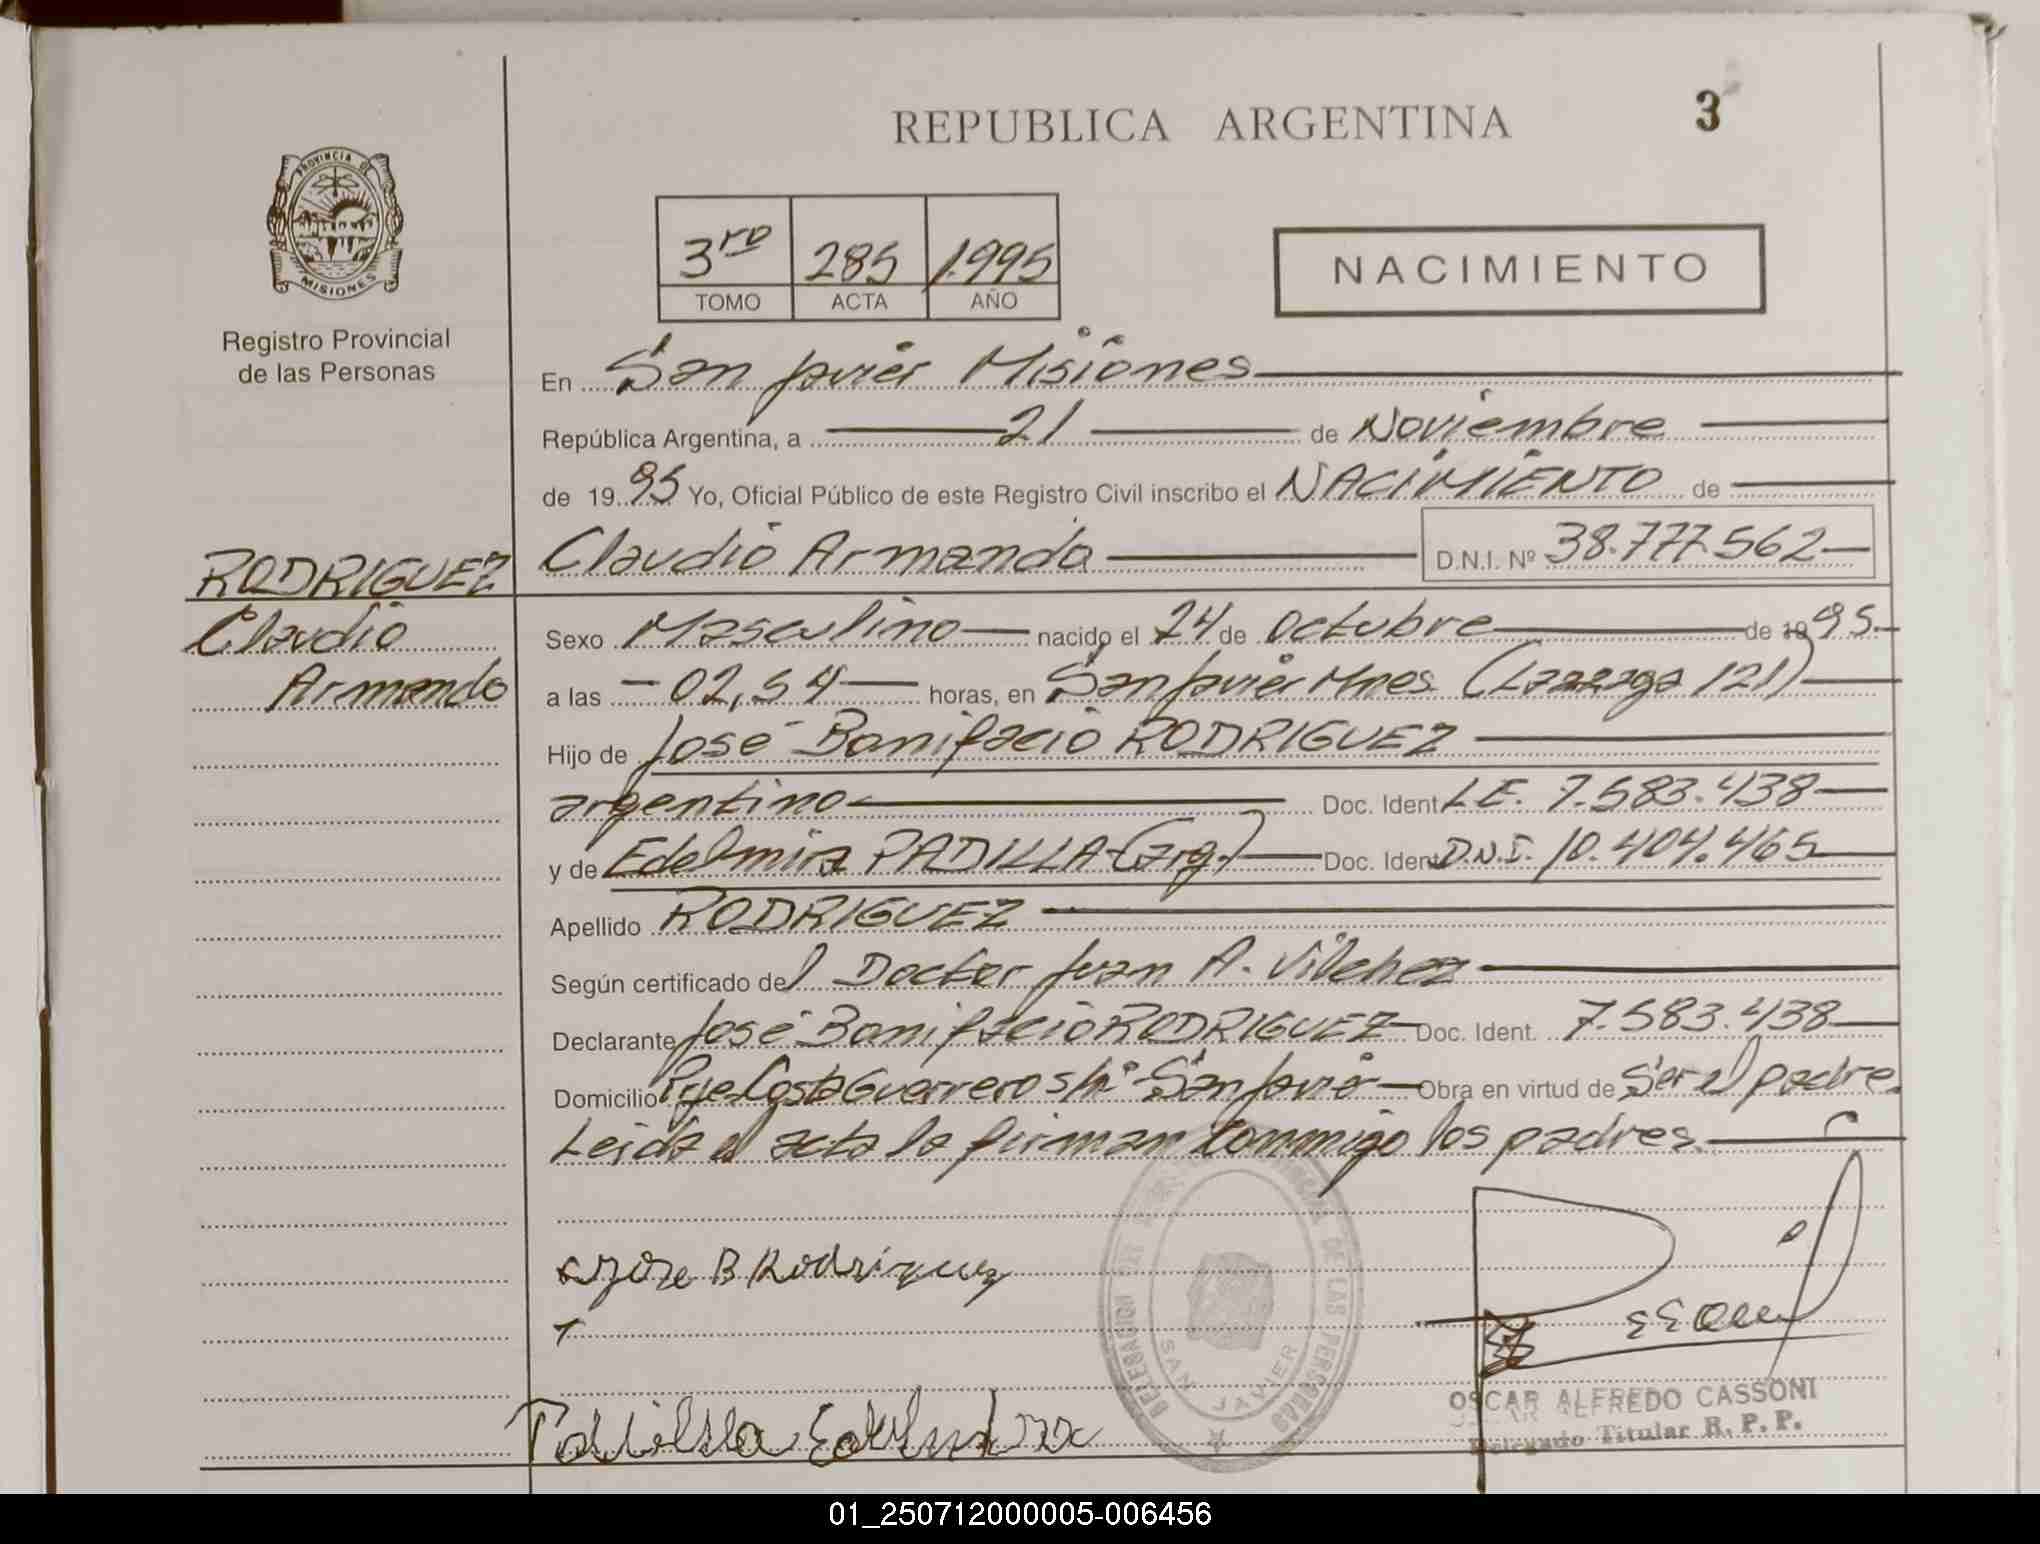 REPUBLICA ARGENTINA
3
PROVINCIA DE
MISIONES
Registro Provincial
de las Personas
3ro 285 1.995
TOMO ACTA AÑO
NACIMIENTO
En San Javier Misiones
República Argentina, a 21 de Noviembre
de 1995 Yo, Oficial Público de este Registro Civil inscribo el NACIMIENTO de
Claudio Armando D.N.I. Nº 38.777.562
RODRIGUEZ
Claudio
Armando
Sexo Masculino nacido el 24 de Octubre de 1995.
a las 02,54 horas, en San Javier Mnes (121)
Hijo de José Bonifacio RODRIGUEZ
argentino Doc. Ident. L.E. 7.583.438
y de Edelmira PADILLA (arg.) Doc. Ident. D.N.I. 10.404.465
Apellido RODRIGUEZ
Según certificado del Doctor Juan A. Vilchez
Declarante José Bonifacio RODRIGUEZ Doc. Ident. 7.583.438
Domicilio Costa Guerrero s/nº San Javier Obra en virtud de Ser el padre.
Leida el acta la firman conmigo los padres.
Jose B Rodriguez
Padilla
DELEGACION DE LAS PERSONAS
SAN JAVIER
OSCAR ALFREDO CASSONI
Delegado Titular R. P. P.
01_250712000005-006456